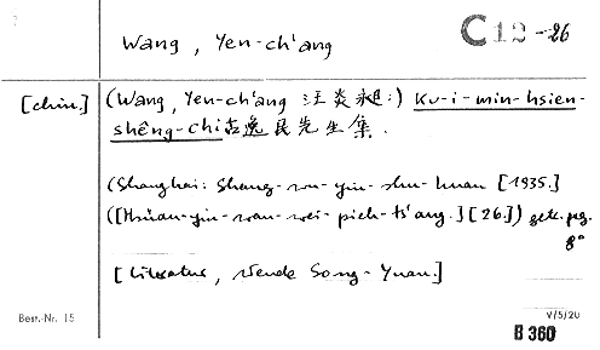 Wang, Yen-ch'ang
C 12 -26
[chin.] (Wang, Yen-ch'ang 汪炎昶:) Ku-i-min-hsien-
shêng-chi 古逸民先生集.
(Shanghai: Shang-wu-yin-shu-kuan [1935.]
([Hsüan-yin-wan-wei-pieh-ts'ang.] [26.]) getr. pag.
8°
[Literatur, Wende Song-Yuan.]
Best.-Nr. 15
V/5/20
B 360